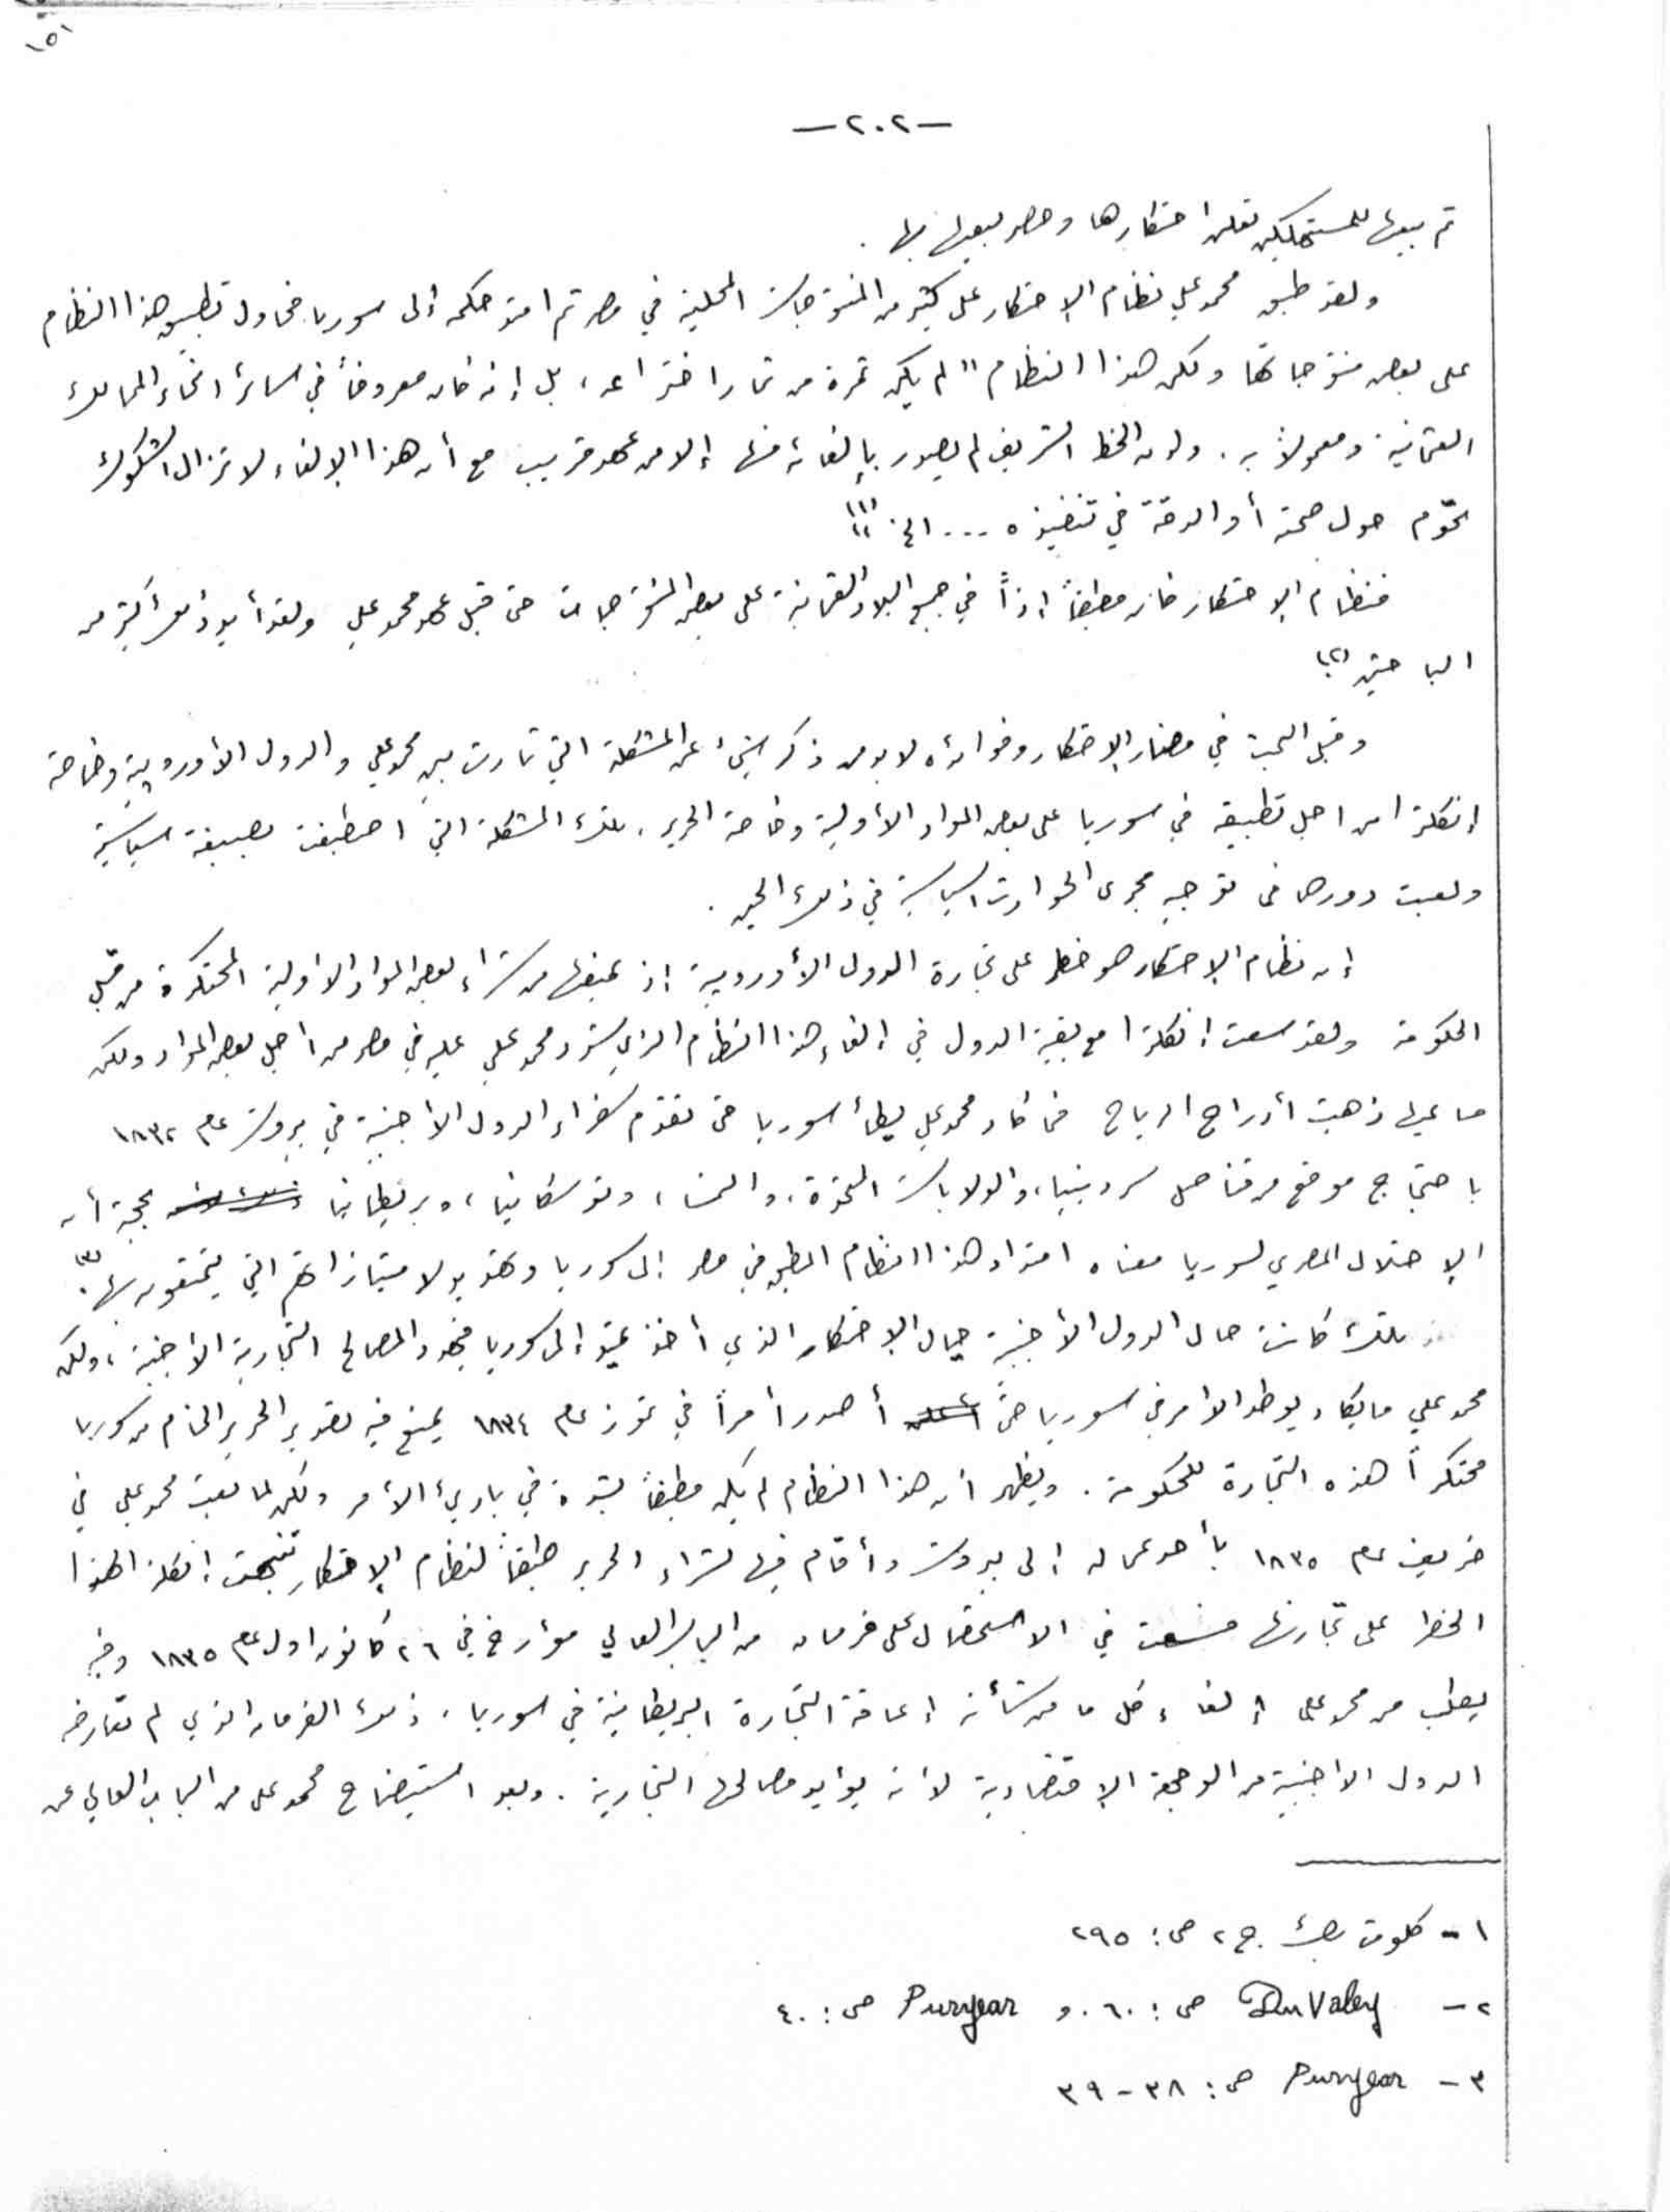 ١٥١
-٢٠٢-
ثم بيعها للمستهلكين تعلن احتكارها وحصر بيعها بها.
ولقد طبق محمد علي نظام الاحتكار على كثير من المنتوجات المحلية في مصر ثم امتد حكمه إلى سوريا فحاول تطبيق هذا النظام
على بعض منتوجاتها ولكن هذا النظام "لم يكن ثمرة من ثمار اختراعه، بل إنه كان معروفاً في سائر أنحاء الممالك
العثمانية ومعمولاً به. وان الخط الشريف لم يصدر بإلغائه منها إلا من عهد قريب مع أن هذا الإلغاء لا تزال الشكوك
تحوّم حول صحته أو الدقة في تنفيذه ... الخ" (١)
فنظام الاحتكار كان مطبقاً إذاً في جميع البلاد العثمانية على بعض المنتوجات حتى قبل عهد محمد علي ولقد أيد ذلك أكثر من
الباحثين (٢)
وقبل البحث في مضار الاحتكار وفوائده لا بد من ذكر شيء عن المشكلة التي ثارت بين محمد علي والدول الأوروبية وخاصة
إنكلترا من اجل تطبيقه في سوريا على بعض المواد الأولية وخاصة الحرير. تلك المشكلة التي اصطبغت بصبغة سياسية
ولعبت دورها في توجيه مجرى الحوادث السياسية في ذلك الحين.
إن نظام الاحتكار هو خطر على تجارة الدول الأوروبية إذ يمنعها من شراء بعض المواد الأولية المحتكرة من قبل
الحكومة ولقد سعت إنكلترا مع بقية الدول في إلغاء هذا النظام الذي شدد محمد علي عليه في مصر من اجل بعض المواد ولكن
مساعيها ذهبت أدراج الرياح فما كاد محمد علي يطأ سوريا حتى تقدم سفراء الدول الأجنبية في بيروت عام ١٨٣٢
باحتجاج موقع من قناصل سردينيا، والولايات المتحدة، والنمسا، وتوسكانيا، وبريطانيا بحجة أن
الاحتلال المصري لسوريا معناه امتداد هذا النظام المطبق في مصر إلى سوريا وتهديد لامتيازاتهم التي يتمتعون بها (٣).
تلك كانت حال الدول الأجنبية حيال الاحتكار الذي أخذ يمتد إلى سوريا فيهدد المصالح التجارية الأجنبية، ولكن
محمد علي ما يكاد يوطد الأمر في سوريا حتى أصدر أمراً في تموز عام ١٨٣٤ يمنع فيه تصدير الحرير الخام من سوريا
محتكراً هذه التجارة للحكومة. ويظهر أن هذا النظام لم يكن مطبقاً بشدة في بادئ الأمر ولكن لما بعث محمد علي في
خريف عام ١٨٣٥ بأحد عماله إلى بيروت وأقام فيها لشراء الحرير طبقاً لنظام الاحتكار تنبهت إنكلترا لهذا
الخطر على تجارتها فسعت في الاستحصال على فرمان من الباب العالي مؤرخ في ٢٦ كانون اول عام ١٨٣٥ وفيه
يطلب من محمد علي إلغاء كل ما من شأنه إعاقة التجارة البريطانية في سوريا. ذلك الفرمان الذي لم تعارضه
الدول الأجنبية من الوجهة الاقتصادية لأنه يؤيد مصالحها التجارية. وبعد استيضاح محمد علي من الباب العالي عن
١- كلوت بك ج ٢ ص: ٢٩٥
٢- Du Valey ص: ٦٠. و Puryear ص: ٤٠
٣- Puryear ص: ٣٨-٣٩